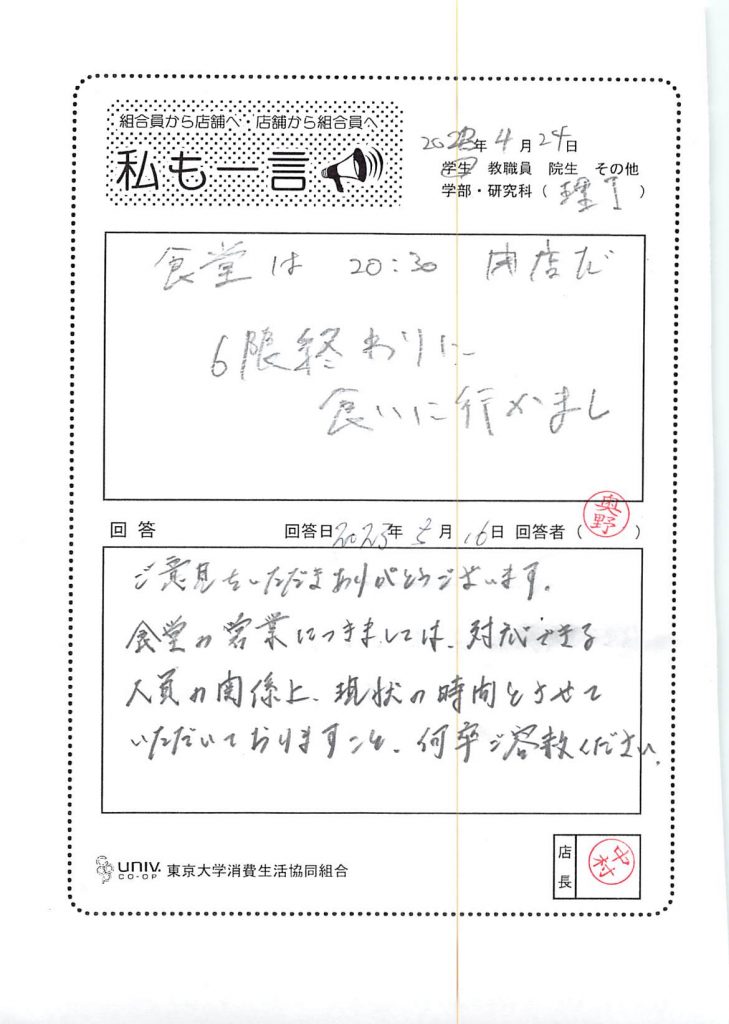 組合員から店舗へ・店舗から組合員へ
私も一言
2023年4月24日
学生 教職員 院生 その他
学部・研究科（理1）
食堂は 20:30 閉店だ
6限終わりに
食いに行かまし
回答 回答日2023年5月16日 回答者（奥野）
ご意見をいただきありがとうございます。
食堂の営業につきましては、対応できる
人員の関係上、現状の時間とさせて
いただいておりますこと、何卒ご容赦ください。
UNIV. CO-OP 東京大学消費生活協同組合
店長 中村